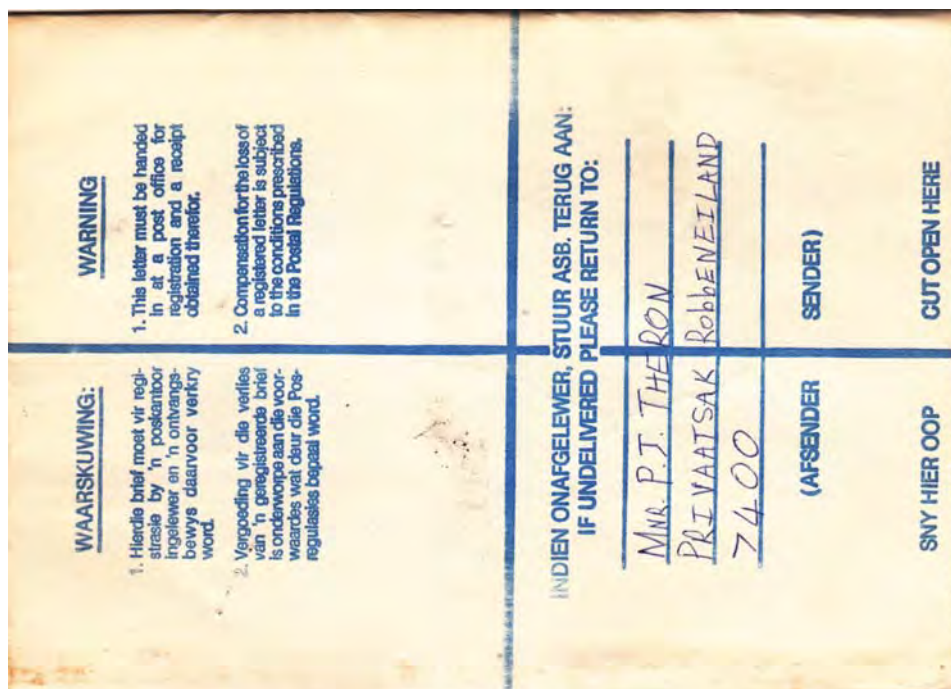 WAARSKUWING:
1. Hierdie brief moet vir regi-
strasie by 'n poskantoor
ingelewer en 'n ontvangs-
bewys daarvoor verkry
word.
2. Vergoeding vir die verlies
van 'n geregistreerde brief
is onderworpe aan die voor-
waardes wat deur die Pos-
regulasies bepaal word.
WARNING
1. This letter must be handed
in at a post office for
registration and a receipt
obtained therefor.
2. Compensation for the loss of
a registered letter is subject
to the conditions prescribed
in the Postal Regulations.
INDIEN ONAFGELEWER, STUUR ASB. TERUG AAN:
IF UNDELIVERED PLEASE RETURN TO:
MNR. P.J. THERON
PRIVAATSAK RobbENEILAND
7400
(AFSENDER SENDER)
SNY HIER OOP CUT OPEN HERE